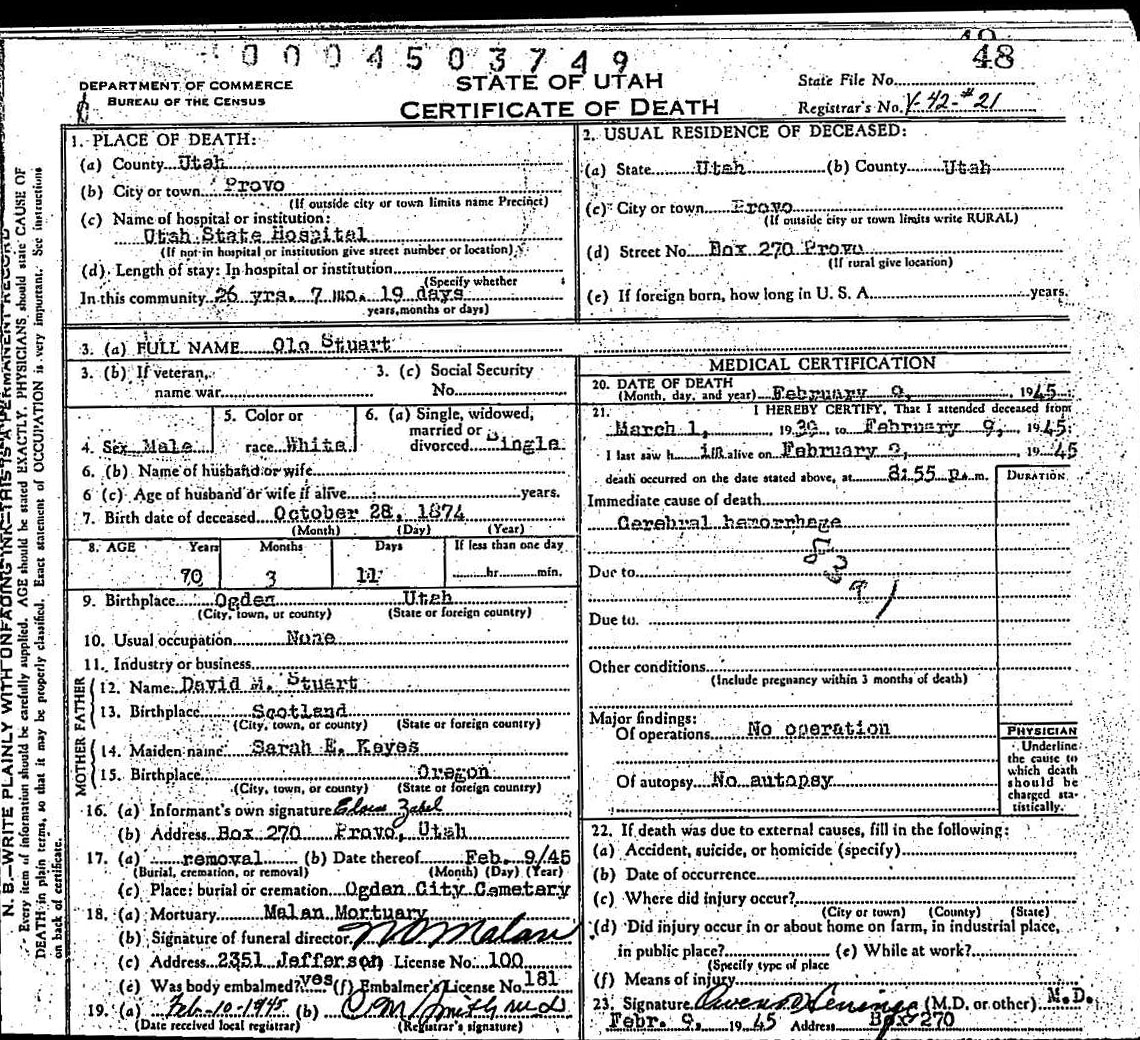 48
0 0 0 4 5 0 3 7 4 9
DEPARTMENT OF COMMERCE
BUREAU OF THE CENSUS
STATE OF UTAH
CERTIFICATE OF DEATH
State File No.
Registrar's No. V-42-#21
1. PLACE OF DEATH:
(a) County Utah
(b) City or town Provo
(If outside city or town limits name Precinct)
(c) Name of hospital or institution:
Utah State Hospital
(If not in hospital or institution give street number or location)
(d) Length of stay: In hospital or institution
(Specify whether
In this community 26 yrs. 7 mo. 19 days
years, months or days)
2. USUAL RESIDENCE OF DECEASED:
(a) State Utah (b) County Utah
(c) City or town Provo
(If outside city or town limits write RURAL)
(d) Street No. Box 270 Provo
(If rural give location)
(e) If foreign born, how long in U. S. A. years.
3. (a) FULL NAME Olo Stuart
3. (b) If veteran, 3. (c) Social Security
name war No.
4. Sex Male 5. Color or race White 6. (a) Single, widowed, married or divorced Single
6. (b) Name of husband or wife
6 (c) Age of husband or wife if alive years.
7. Birth date of deceased October 28, 1874
(Month) (Day) (Year)
8. AGE Years Months Days If less than one day
70 3 11 hr. min.
9. Birthplace Ogden Utah
(City, town, or county) (State or foreign country)
10. Usual occupation None
11. Industry or business
FATHER
12. Name David M. Stuart
13. Birthplace Scotland
(City, town, or county) (State or foreign country)
MOTHER
14. Maiden name Sarah E. Keyes
15. Birthplace Oregon
(City, town, or county) (State or foreign country)
16. (a) Informant's own signature Zabel
(b) Address Box 270 Provo, Utah
17. (a) removal (b) Date thereof Feb. 9/45
(Burial, cremation, or removal) (Month) (Day) (Year)
(c) Place: burial or cremation Ogden City Cemetary
18. (a) Mortuary Malan Mortuary
(b) Signature of funeral director. N O Malan
(c) Address 2351 Jefferson License No. 100
(e) Was body embalmed? yes (f) Embalmer's License No. 181
19. (a) Feb-10-1945 (b) C M Smith M D
(Date received local registrar) (Registrar's signature)
MEDICAL CERTIFICATION
20. DATE OF DEATH
(Month, day, and year) February 9, 1945
21. I HEREBY CERTIFY, That I attended deceased from
March 1, 1939 to February 9, 1945;
I last saw h im alive on February 9, 1945
death occurred on the date stated above, at 8:55 p. m. DURATION
Immediate cause of death
Cerebral hemorrhage
Due to
Due to.
Other conditions
(Include pregnancy within 3 months of death)
Major findings:
Of operations No operation
Of autopsy No autopsy
PHYSICIAN
Underline
the cause to
which death
should be
charged sta-
tistically.
22. If death was due to external causes, fill in the following:
(a) Accident, suicide, or homicide (specify)
(b) Date of occurrence
(c) Where did injury occur?
(City or town) (County) (State)
(d) Did injury occur in or about home on farm, in industrial place,
in public place? (e) While at work?
(Specify type of place
(f) Means of injury
23. Signature (M.D. or other) M.D.
Febr. 9, 1945 Address Box 270
N. B.—WRITE PLAINLY WITH UNFADING INK—THIS IS A PERMANENT RECORD
Every item of information should be carefully supplied. AGE should be stated EXACTLY. PHYSICIANS should state CAUSE OF
DEATH in plain terms, so that it may be properly classified. Exact statement of OCCUPATION is very important. See instructions
on back of certificate.